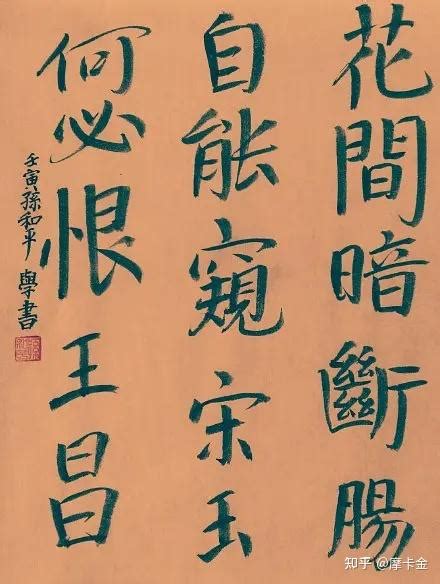 花間暗斷腸
自能窺宋玉
何必恨王昌
壬寅孫和平學書
知乎 @摩卡金